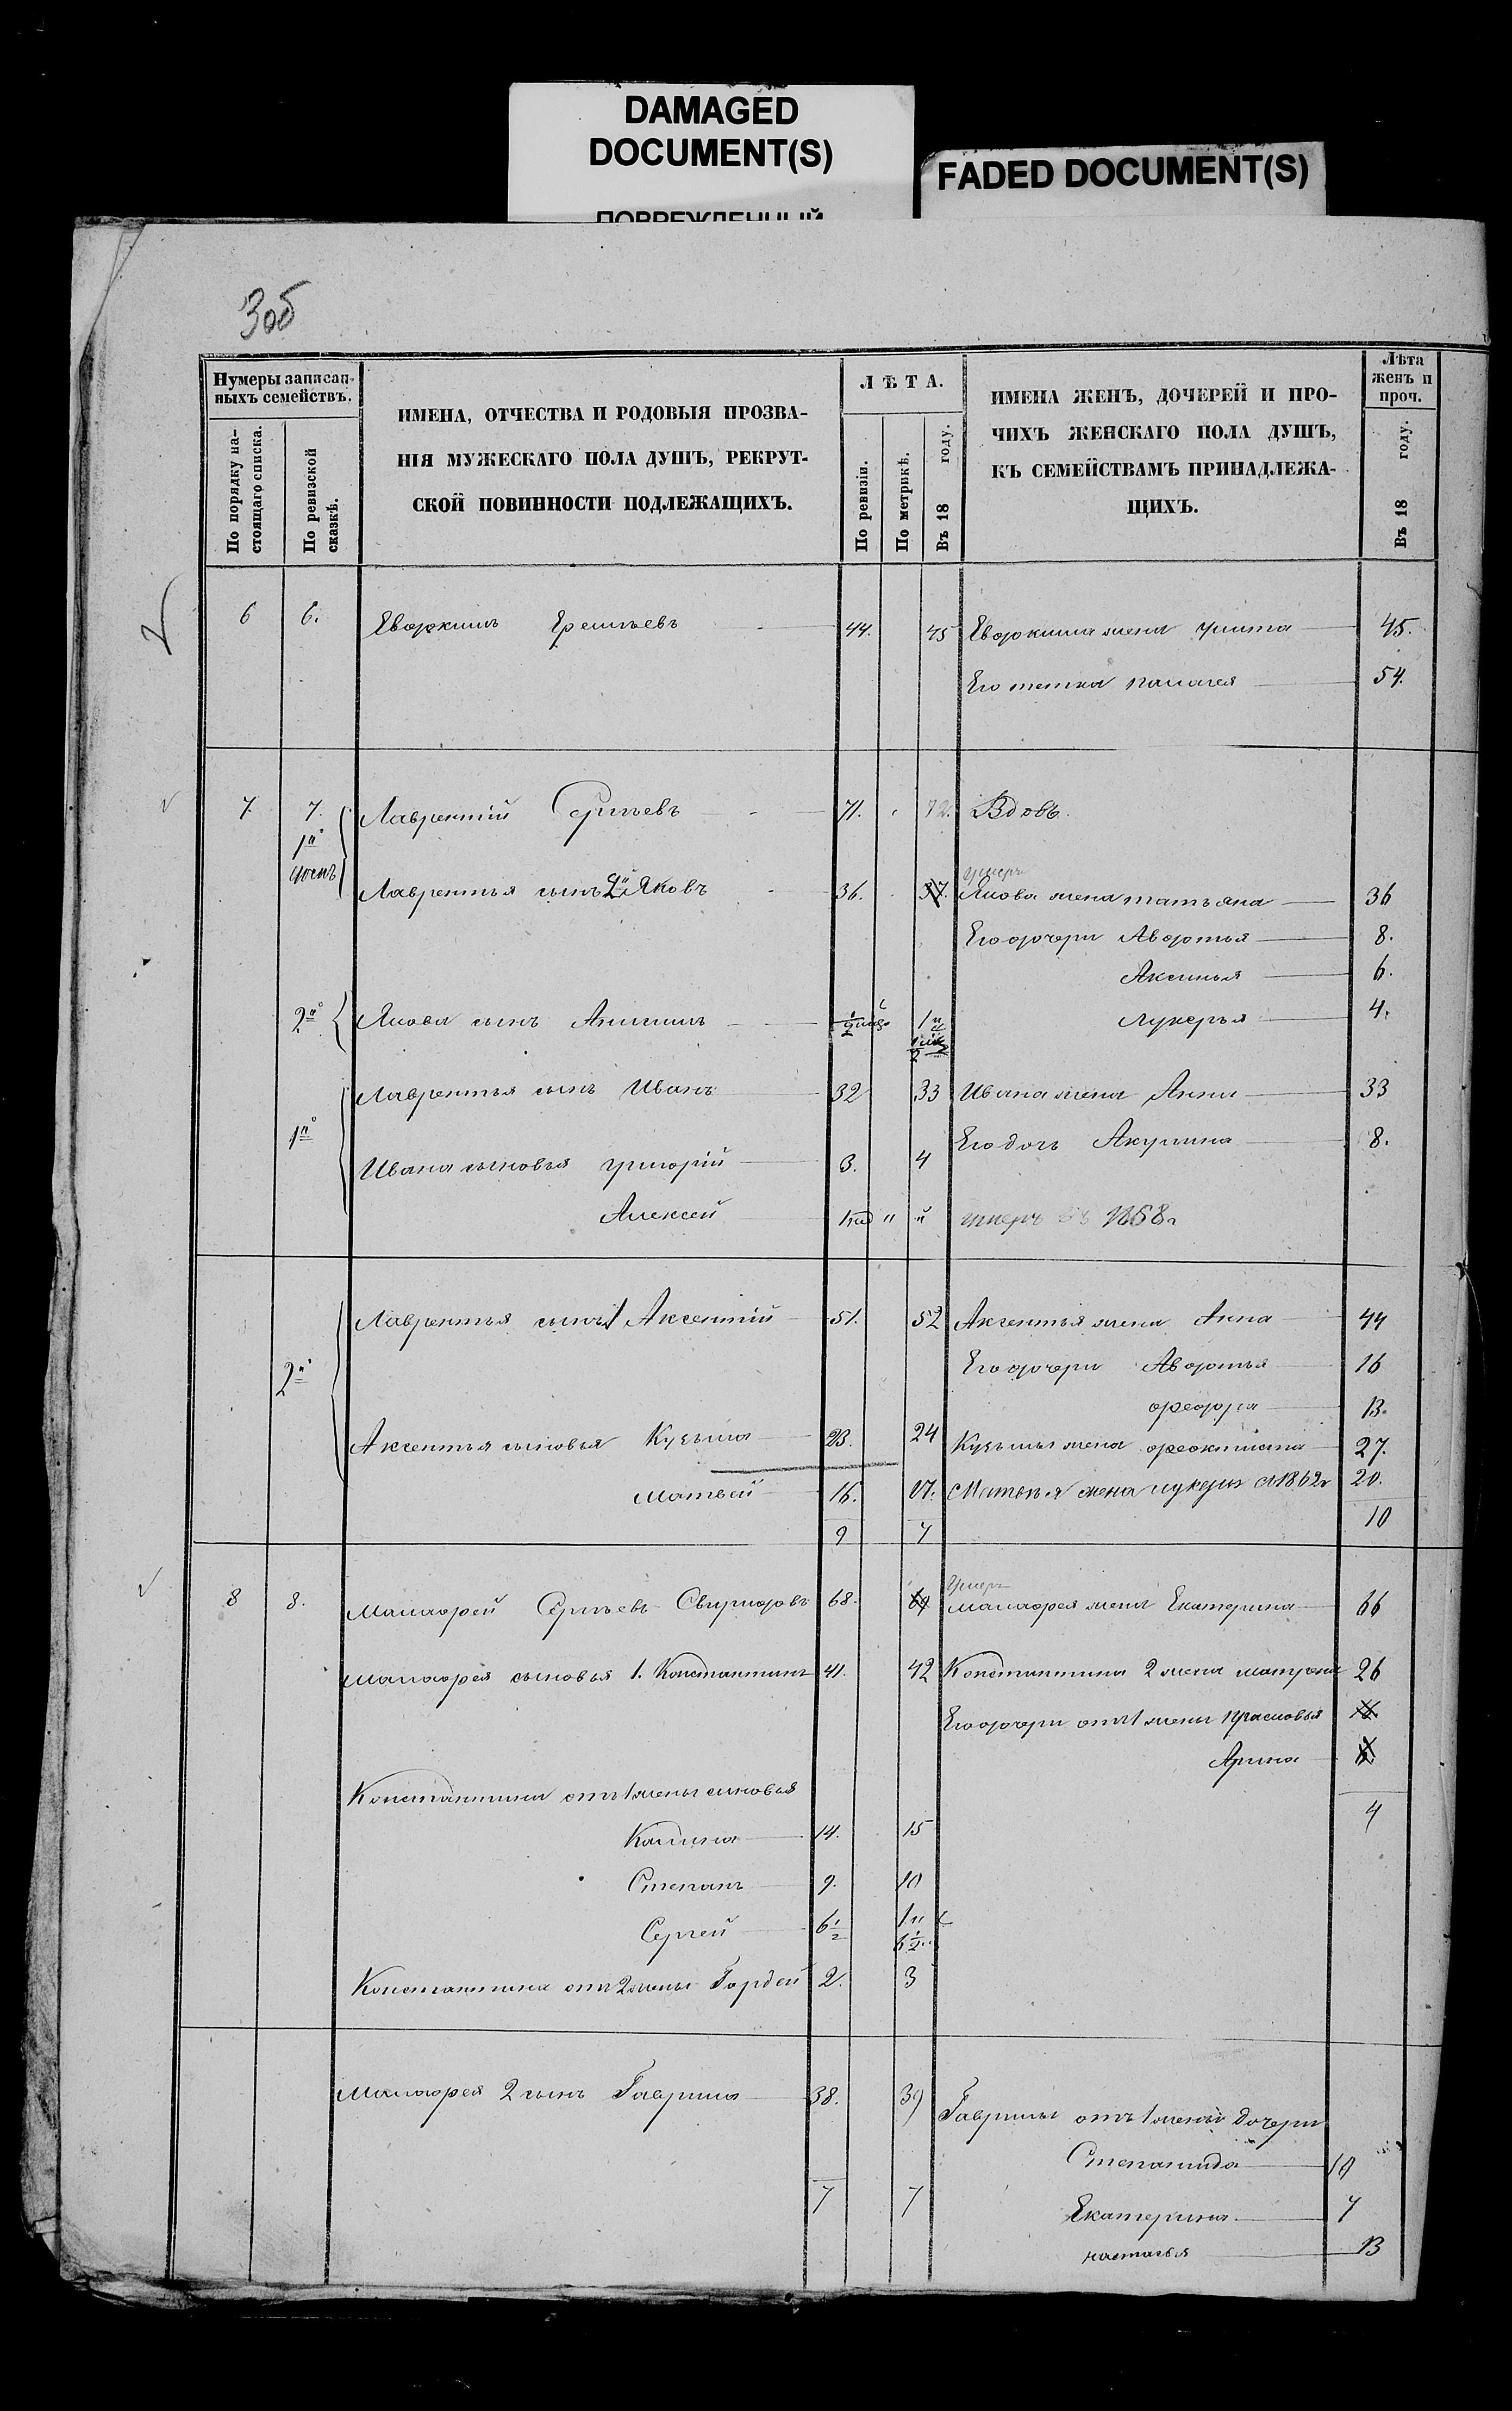 DAMAGED
DOCUMENT(S)
ПОВРЕЖДЕННЫЙ
FADED DOCUMENT(S)
3об
Нумеры записан-
ныхъ семействъ.
По порядку на-
стоящаго списка.
По ревизской
сказкѣ.
ИМЕНА, ОТЧЕСТВА И РОДОВЫЯ ПРОЗВА-
НІЯ МУЖЕСКАГО ПОЛА ДУШЪ, РЕКРУТ-
СКОЙ ПОВИННОСТИ ПОДЛЕЖАЩИХЪ.
ЛѢТА.
По ревизіи.
По метрикѣ.
Въ 18 году.
ИМЕНА ЖЕНЪ, ДОЧЕРЕЙ И ПРО-
ЧИХЪ ЖЕНСКАГО ПОЛА ДУШЪ,
КЪ СЕМЕЙСТВАМЪ ПРИНАДЛЕЖА-
ЩИХЪ.
Лѣта
женъ и
проч.
Въ 18 году.
6 6. Евдокимъ 44. 45 Евдокима жена 45.
Его тетка 54.
7. 7. Лаврентій Сергѣевъ 71. 72. Вдовъ.
1й
умеръ
Лаврентья сынъ 2й Яковъ 36. 37. Якова жена татьяна 36
Его дочери Авдотья 8.
Аксинья 6.
2й Якова сынъ 1/2 лукерья 4.
Лаврентья сынъ Иванъ 32 33 Ивана жена Анна 33
1й Его дочь Акулина 8.
Ивана сыновья григорій 3. 4
Алексей умеръ въ 1858г
Лаврентья сынъ 1 Аксентій 51. 52 Аксентья жена Анна 44
2й Его дочери Авдотья 16
13.
Аксентья сыновья Кузьма 23. 24 Кузьмы жена феоктиста 27.
Матвей 16. 17. Матвѣя жена лукерья 1862г 20.
9 7 10
умеръ
8 8. Малафей Сергѣевъ 68. 69 Малафея жена Екатерина 66
Малафея сыновья 1. Константинъ 41. 42 Константина 2 жена матрена 26
Его дочери отъ 1 жены Прасковья
Арина
Константина отъ 1 жены сыновья 4
Калина 14. 15
Степанъ 9. 10
Сергей 6 1/2 6 1/2
Константина отъ 2 жены Гордей 2. 3
Малафея 2 сынъ Гаврила 38. 39
Гаврилы отъ 1 жены дочери
Степанида 10
7 7 Екатерина 7
настасья 13